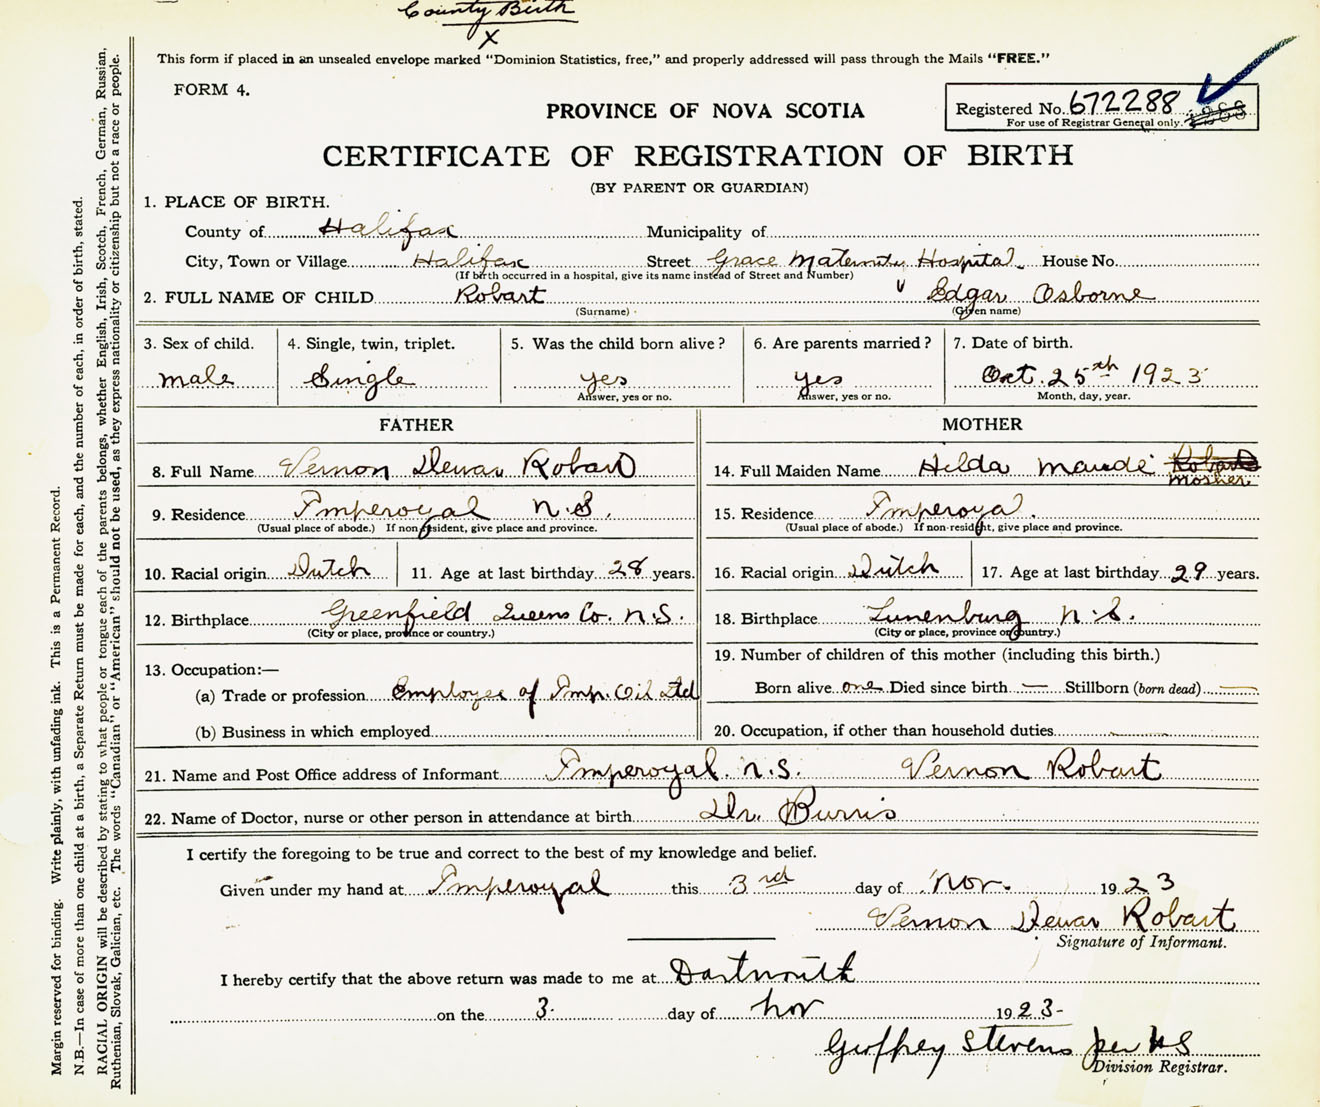 County Birth
X
This form if placed in an unsealed envelope marked "Dominion Statistics, free," and properly addressed will pass through the Mails "FREE."
FORM 4.
PROVINCE OF NOVA SCOTIA
Registered No. 672288
For use of Registrar General only.
CERTIFICATE OF REGISTRATION OF BIRTH
(BY PARENT OR GUARDIAN)
1. PLACE OF BIRTH.
County of Halifax Municipality of
City, Town or Village Halifax Street Grace Maternity Hospital House No.
(If birth occurred in a hospital, give its name instead of Street and Number)
2. FULL NAME OF CHILD Robart Edgar Osborne
(Surname) (Given name)
3. Sex of child. 4. Single, twin, triplet. 5. Was the child born alive? 6. Are parents married? 7. Date of birth.
male Single yes yes Oct. 25th 1923
Answer, yes or no. Answer, yes or no. Month, day, year.
FATHER MOTHER
8. Full Name Vernon Dewar Robart 14. Full Maiden Name Hilda Maude Robart
Mosher
9. Residence Imperoyal N.S. 15. Residence Imperoyal.
(Usual place of abode.) If non resident, give place and province. (Usual place of abode.) If non-resident, give place and province.
10. Racial origin Dutch 11. Age at last birthday 28 years. 16. Racial origin Dutch 17. Age at last birthday 29 years.
12. Birthplace Greenfield Queens Co. N.S. 18. Birthplace Lunenburg N.S.
(City or place, province or country.) (City or place, province or country.)
19. Number of children of this mother (including this birth.)
13. Occupation:—
(a) Trade or profession Employee of Imp. Oil Ltd Born alive one Died since birth — Stillborn (born dead) —
(b) Business in which employed 20. Occupation, if other than household duties
21. Name and Post Office address of Informant Imperoyal. N.S. Vernon Robart
22. Name of Doctor, nurse or other person in attendance at birth Dr. Burris
I certify the foregoing to be true and correct to the best of my knowledge and belief.
Given under my hand at Imperoyal this 3rd day of Nov. 1923
Vernon Dewar Robart
Signature of Informant.
I hereby certify that the above return was made to me at Dartmouth
on the 3. day of Nov 1923-
Geoffrey Stevens per HS
Division Registrar.
Margin reserved for binding. Write plainly, with unfading ink. This is a Permanent Record.
N.B.—In case of more than one child at a birth, a Separate Return must be made for each, and the number of each, in order of birth, stated.
RACIAL ORIGIN will be described by stating to what people or tongue each of the parents belongs, whether English, Irish, Scotch, French, German, Russian,
Ruthenian, Slovak, Galician, etc. The words "Canadian" or "American" should not be used, as they express nationality or citizenship but not a race or people.